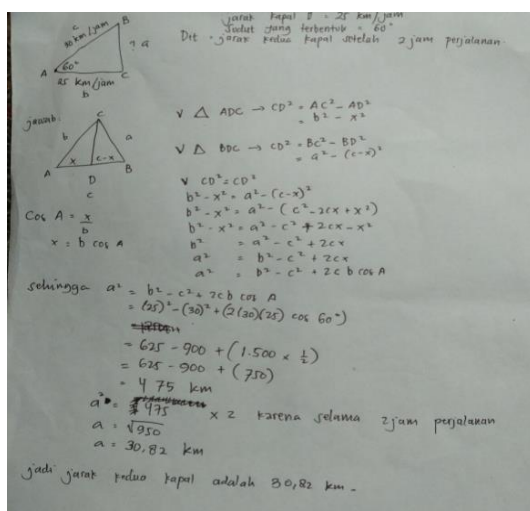 jarak kapal B = 25 km/jam
Sudut yang terbentuk = 60°
Dit = jarak kedua kapal setelah 2 jam perjalanan.
c
30 km/jam
B
? a
A
60°
C
25 km/jam
b
jawab
C
b
a
x
c-x
A
D
B
c
Cos A = x/b
x = b cos A
√ △ ADC → CD² = AC² - AD²
= b² - x²
√ △ BDC → CD² = BC² - BD²
= a² - (c-x)²
√ CD² = CD²
b² - x² = a² - (c-x)²
b² - x² = a² - (c² - 2cx + x²)
b² - x² = a² - c² + 2cx - x²
b² = a² - c² + 2cx
a² = b² - c² + 2cx
a² = b² - c² + 2cb cos A
sehingga a² = b² - c² + 2cb cos A
= (25)² - (30)² + (2(30)(25) cos 60°)
= 625 - 900 + (1.500 × ½)
= 625 - 900 + (750)
= 475 km
a² = 475 × 2 karena selama 2 jam perjalanan
a = √950
a = 30,82 km
jadi jarak kedua kapal adalah 30,82 km.